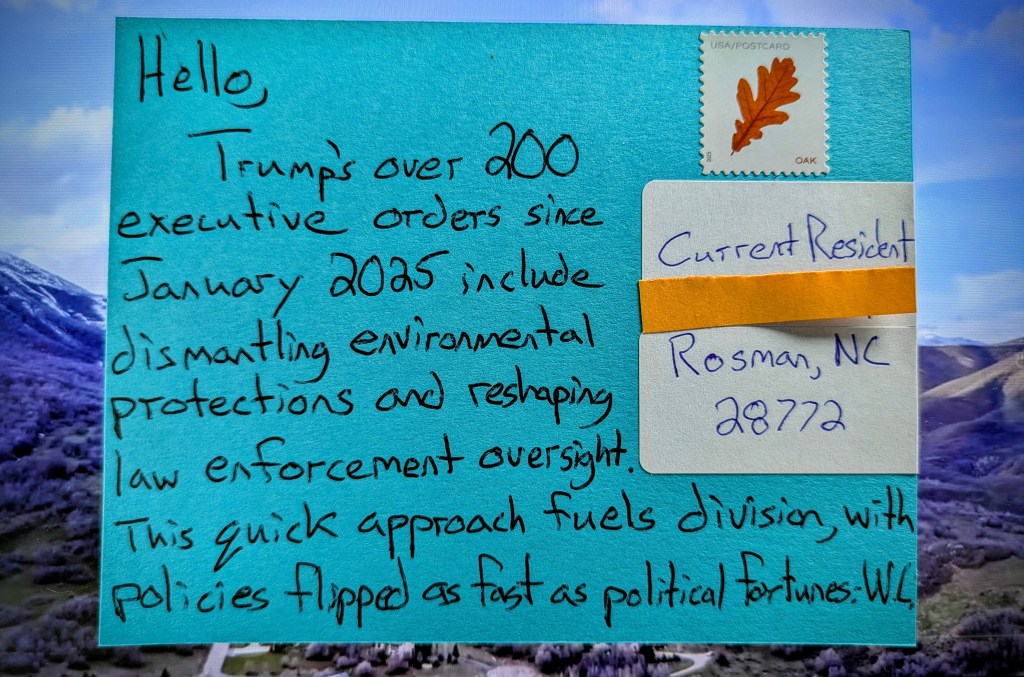 Hello,
Trump's over 200
executive orders since
January 2025 include
dismantling environmental
protections and reshaping
law enforcement oversight.
This quick approach fuels division, with
policies flipped as fast as political fortunes.-W.C.
USA/POSTCARD
2023
OAK
Current Resident
Rosman, NC
28772